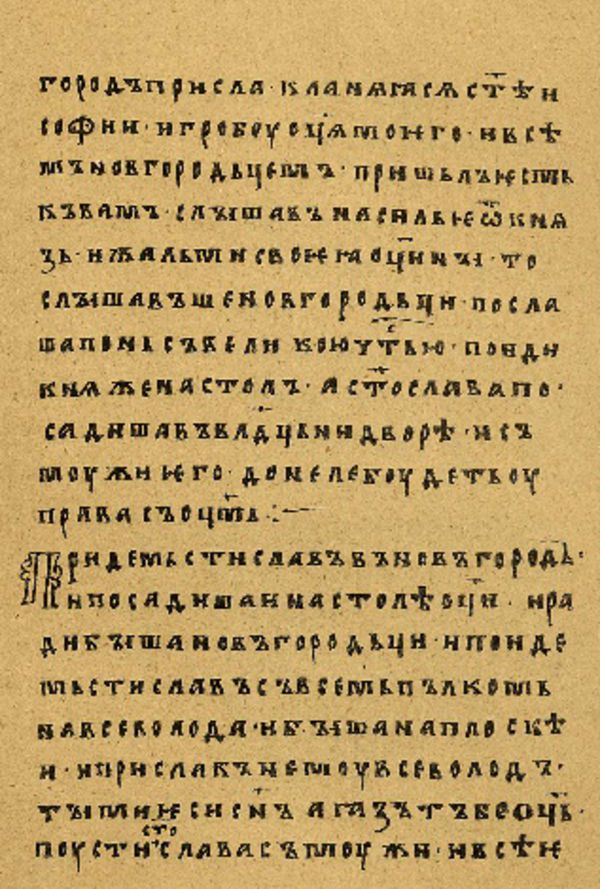 городъприсла· кланяꙗсѧстѣи
софии· игробоуоцѧмоѥго· ивьсѣ
мъновгородьцемъ· пришьлъѥсмь
къвамъ· слышавънасильѥѿкнѧ
зь· ижальмисвоѥꙗоцины· то
слышавъшеновгородьци· посла
шапоньсъвеликоюцтью· поиди
кнѧженастолъ· астославапо·
садишавъвладцьнидворѣ· исъ
моужиѥго· донелебоудетьоу
правасъоцмь·:—
Придемьстиславъвъновъгородъ·
ипосадишаинастолѣоци· ира
дибышановъгородьци· ипоиде
мьстиславъсъвсемьпълкомь
навсеволода· ибышанаплоскѣ
и· иприслакънемоувсеволодъ·
тымиѥсисնъ аꙗзътъбеоць·
поустистославасъмоужи· ивьсѣи